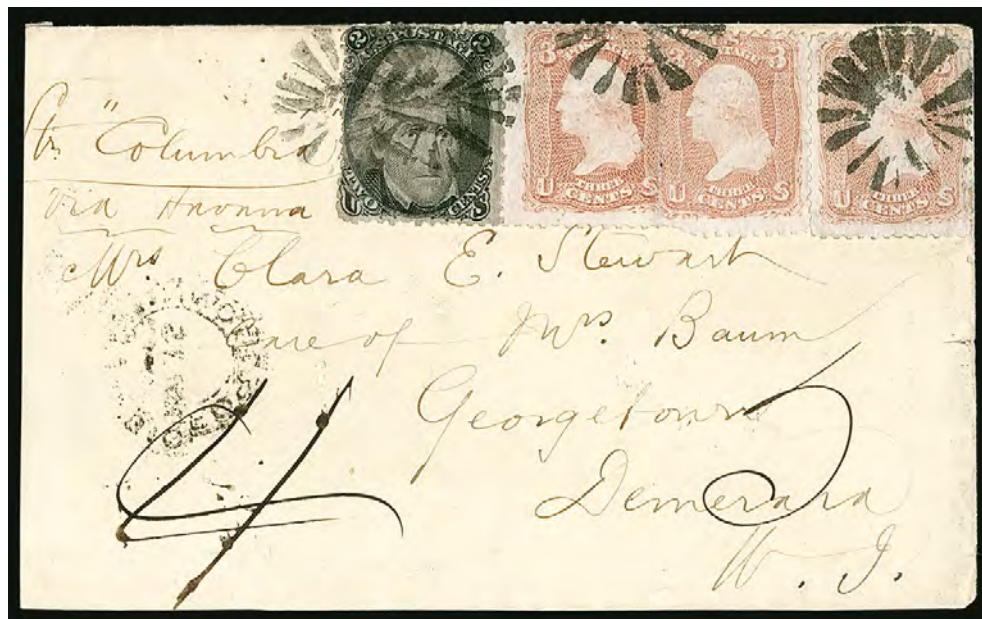 2 U.S. POSTAGE 2
3
3
U THREE CENTS S
U THREE CENTS S
U THREE CENTS S
U CENTS S
Str "Columbia
Via Havana
Mrs Clara E. Stewart
Care of Mrs. Baum
Georgetown
Demerara
W. I.
4